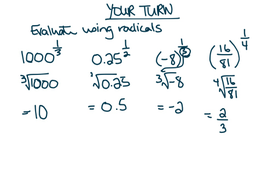 YOUR TURN
Evaluate using radicals
1000^{1/3} 0.25^{1/2} (-8)^{1/3} (16/81)^{1/4}
∛1000 √0.25 ∛-8 ∜(16/81)
= 10 = 0.5 = -2 = 2/3